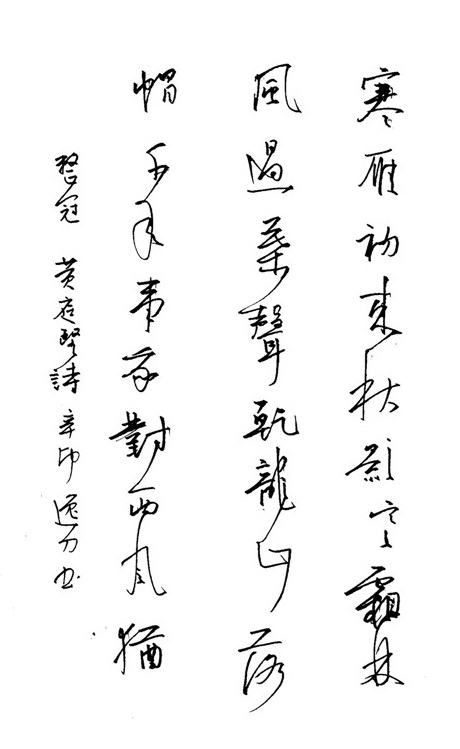 寒雁初来秋影寒霜林
風過葉聲乾龍山落
帽千年事我對西风猶
整冠 黄庭堅詩 辛卯 逸刀书